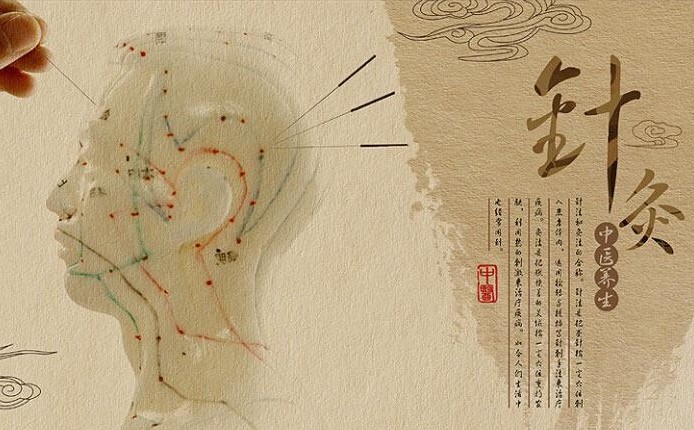 針灸
中医养生
针法和灸法的合称。针法是把毫针按一定穴位刺
入患者体内，运用捻转与提插等针刺手法来治疗
疾病。灸法是把燃烧着的艾绒按一定穴位熏灼皮
肤，利用热的刺激来治疗疾病。如今人们生活中
也经常用针。
中醫